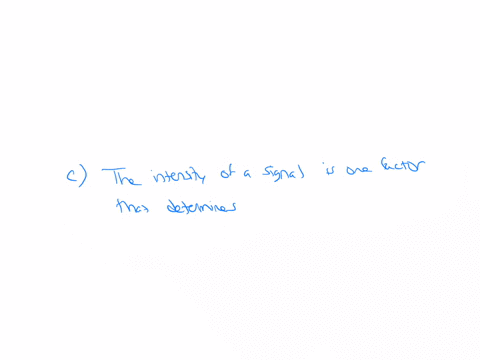 c) The intensity of a signal is one factor
that determines